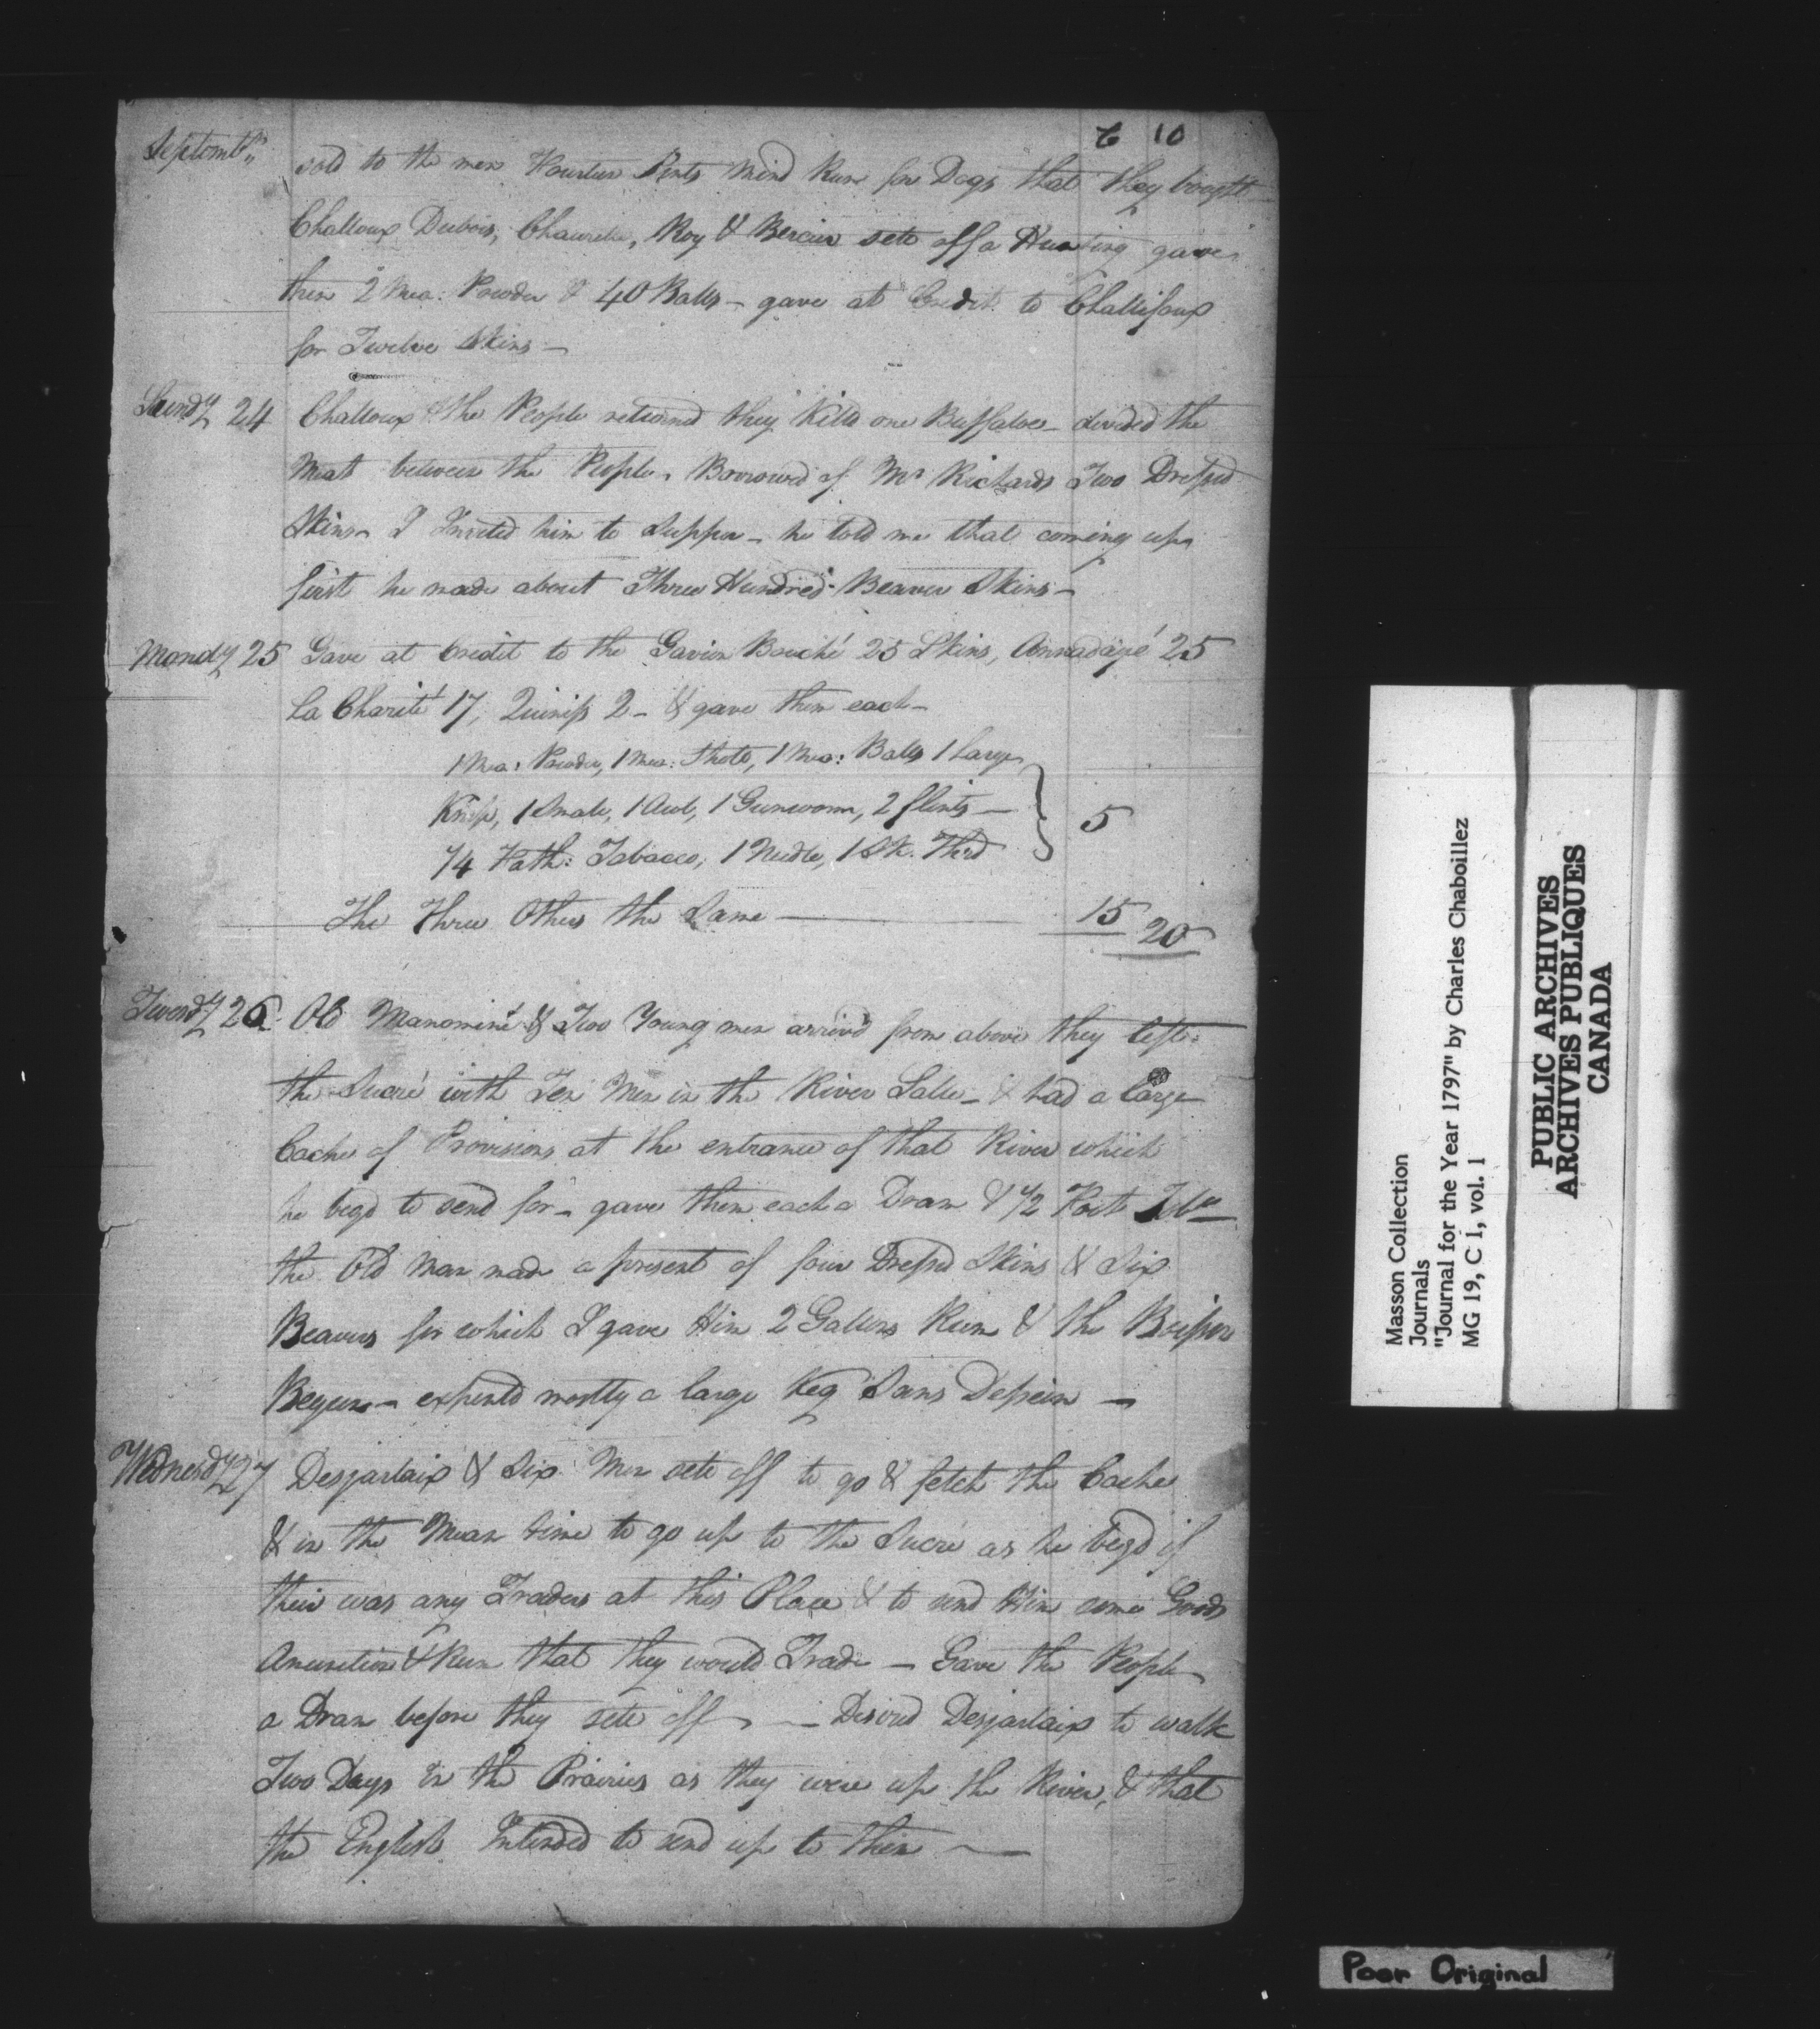 6 10
Septembr
sold to the men Fourteen Pints Mix'd Rum for Dogs that they bought
Challoux Dubois, Chaurette, Roy & Bercier sete off a Hunting gave
them 2 Mea: Powder & 40 Balls – gave at Credit to Challifoux
for Twelve Skins –
Sundy 24 Challoux & the People returned they Killd one Buffaloe – divided the
Meat between the People. Borrowed of Mr Richards Two Dressed
Skins I Invited him to Supper – he told me that coming up
first he made about Three Hundred Beaver Skins –
Mondy 25 Gave at Credit to the Gavion Bouché 25 Skins, 25
La Charité 17, 2 – & gave them each –
1 Mea: Powder, 1 Mea: Shotts, 1 Mea: Balls 1 Large
Knife, 1 Small, 1 Awl, 1 Gunworm, 2 flints –
1/4 Fath: Tobacco, 1 Needle, 1 Sk. Thrd
5
The Three Others the Same –
15 20
Tuesdy 26 Old Manominé & Two Young men arrivd from above they left
the Sucré with Ten Men in the River Salle – & had a large
Cache of Provisions at the entrance of that River which
he begd to send for – gave them each a Dram & 1/2 Foot Tobo
the Old Man made a present of four Dressd Skins & Six
Beavers for which I gave Him 2 Gallons Rum & the Boisson
Begun – expended mostly a large Keg Sans Dessein –
Wednesdy 27 Desjarlaix & Six Men sete off to go & fetch the Cache
& in the Mean time to go up to the Sucré as he begd if
their was any Traders at this Place & to send Him some Goods
Amunition & Rum that they would Trade – Gave the People
a Dram before they sete off – Desired Desjarlaix to walk
Two Days in the Prairies as they were up the River, & that
the English Intended to send up to them –
Masson Collection
Journals
"Journal for the Year 1797" by Charles Chaboillez
MG 19, C 1, vol. 1
PUBLIC ARCHIVES
ARCHIVES PUBLIQUES
CANADA
Poor Original